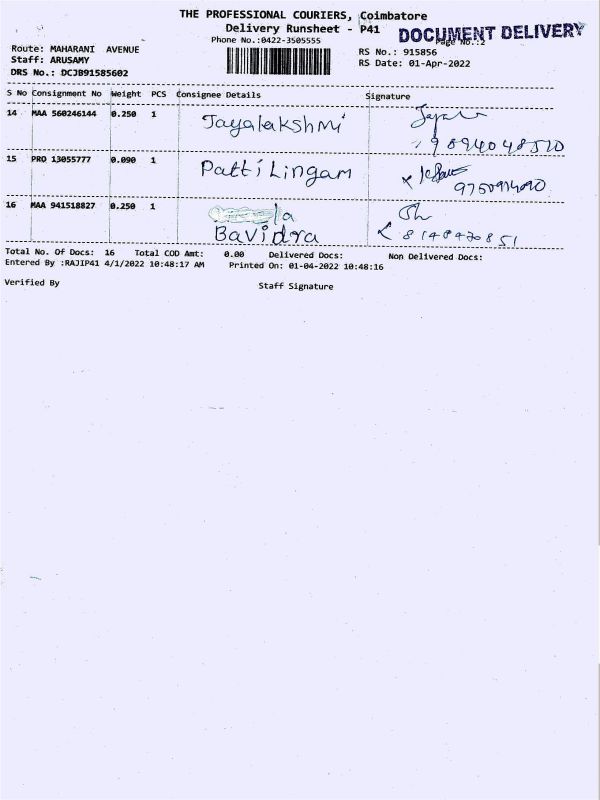 THE PROFESSIONAL COURIERS, Coimbatore
Delivery Runsheet - P41
DOCUMENT DELIVERY
Phone No.:0422-3505555
Page No.:2
Route: MAHARANI AVENUE
RS No.: 915856
Staff: ARUSAMY
RS Date: 01-Apr-2022
DRS No.: DCJB91585602
S No Consignment No Weight PCS Consignee Details Signature
14 MAA 560246144 0.250 1 Jayalakshmi
15 PRO 13055777 0.090 1 Patti Lingam
16 MAA 941518827 0.250 1
Bavidra 8148420851
Total No. Of Docs: 16 Total COD Amt: 0.00 Delivered Docs: Non Delivered Docs:
Entered By :RAJIP41 4/1/2022 10:48:17 AM Printed On: 01-04-2022 10:48:16
Verified By Staff Signature